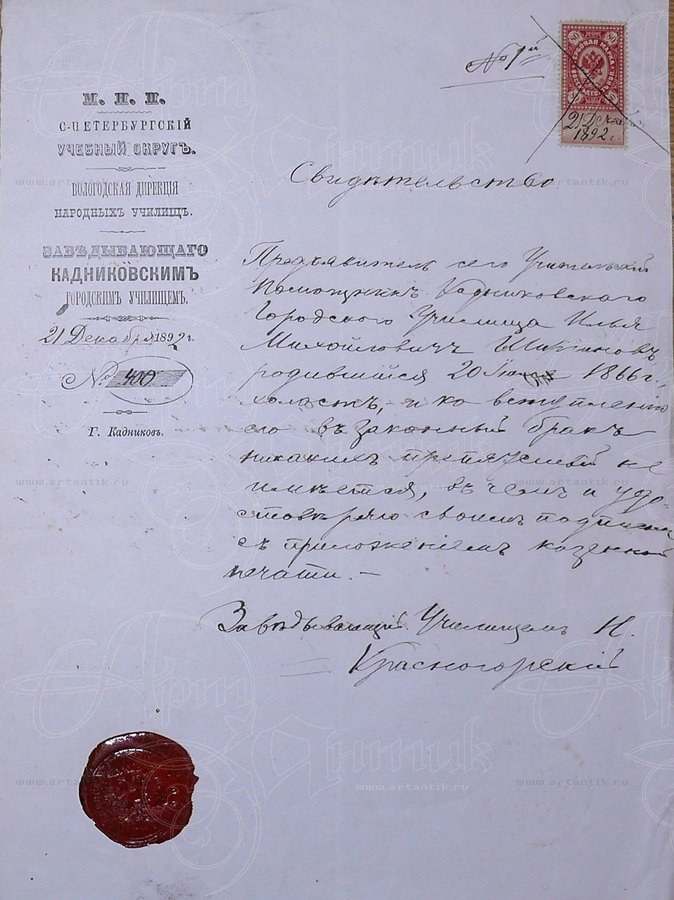 № 1й
21 Декабря
1892 г.
М. Н. П.
С-ПЕТЕРБУРГСКІЙ
УЧЕБНЫЙ ОКРУГЪ.
ВОЛОГОДСКАЯ ДИРЕКЦІЯ
НАРОДНЫХЪ УЧИЛИЩЪ.
ЗАВѢДЫВАЮЩАГО
КАДНИКОВСКИМЪ
ГОРОДСКИМЪ УЧИЛИЩЕМЪ.
21 Декабря 1892 г.
№ 400
Г. Кадниковъ.
Свидѣтельство
Предъявитель сего Учительскій
Помощникъ Кадниковскаго
Городского Училища Илья
Михайловичъ
родившійся 20 1866 г.,
холостъ, и ко вступленію
его въ законный бракъ
никакихъ препятствій не
имѣется, въ чемъ и удо-
стовѣряю своимъ подписомъ
съ приложеніемъ казенной
печати. —
Завѣдывающій Училищемъ Н.
Красногорскій
Арт Антик
www.artantik.ru